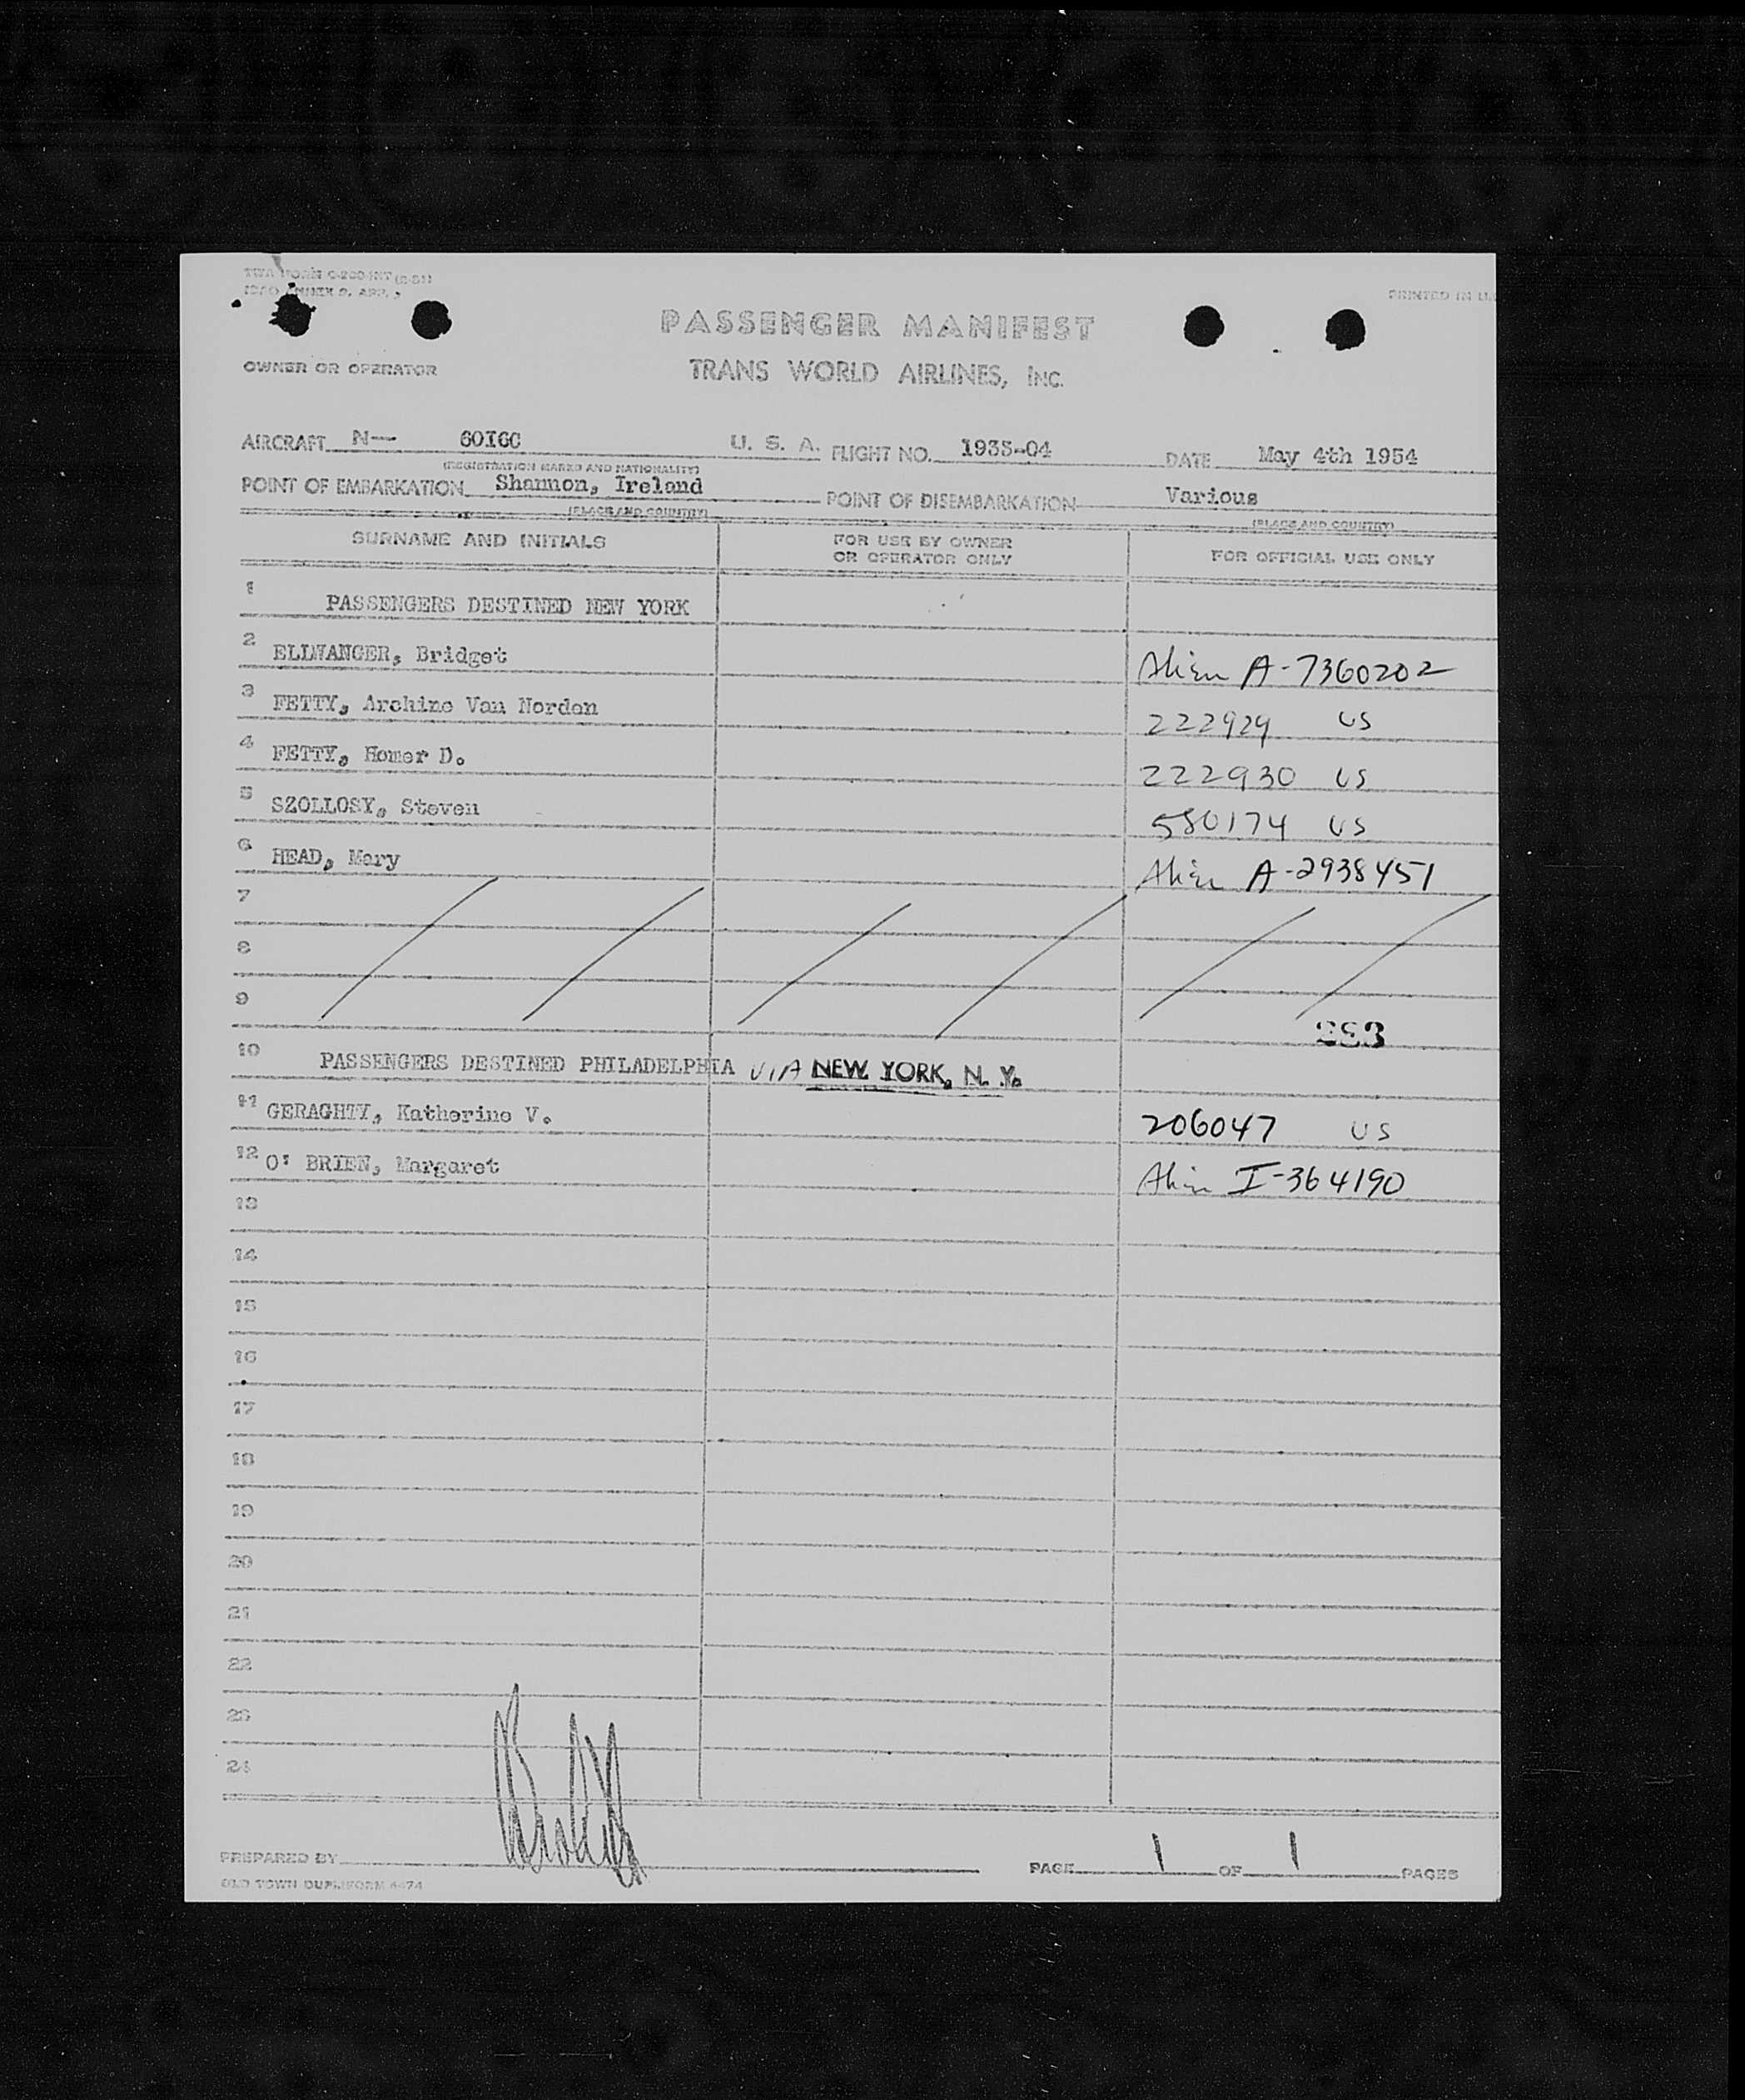 TWA FORM C-200-INT (2-51)
ICAO ANNEX 9, APP.
PRINTED IN U.
PASSENGER MANIFEST
OWNER OR OPERATOR TRANS WORLD AIRLINES, INC.
AIRCRAFT N— 60I6C U. S. A. FLIGHT NO. 1935-04 DATE May 4th 1954
(REGISTRATION MARKS AND NATIONALITY)
POINT OF EMBARKATION Shannon, Ireland POINT OF DISEMBARKATION Various
(PLACE AND COUNTRY) (PLACE AND COUNTRY)
SURNAME AND INITIALS FOR USE BY OWNER OR OPERATOR ONLY FOR OFFICIAL USE ONLY
1 PASSENGERS DESTINED NEW YORK
2 ELLWANGER, Bridget Alien A-7360202
3 FETTY, Archine Van Norden 222929 US
4 FETTY, Homer D. 222930 US
5 SZOLLOSY, Steven 580174 US
6 HEAD, Mary Alien A-2938451
7
8
9
283
10 PASSENGERS DESTINED PHILADELPHIA VIA NEW YORK, N. Y.
11 GERAGHTY, Katherine V. 206047 US
12 O' BRIEN, Margaret Alien I-364190
13
14
15
16
17
18
19
20
21
22
23
24
PREPARED BY PAGE 1 OF 1 PAGES
OLD TOWN DUPLIFORM 4474